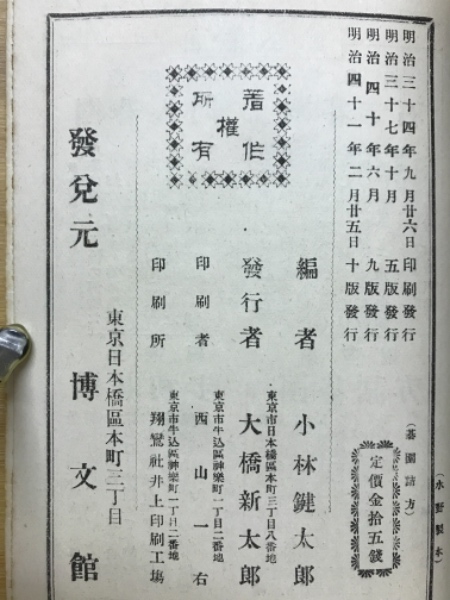 明治三十四年九月廿六日印刷發行
明治三十七年十月五版發行
明治四十年六月九版發行
明治四十一年二月廿五日十版發行
(碁圍詰方)
定價金拾五錢
(水野製本)
著作
權
所有
編者 小林鍵太郎
東京市日本橋區本町三丁目八番地
發行者 大橋新太郎
東京市牛込區神樂町一丁目二番地
印刷者 西山一右
東京市牛込區神樂町一丁目二番地
印刷所 翔鸞社井上印刷工塲
東京日本橋區本町三丁目
發兌元 博文館